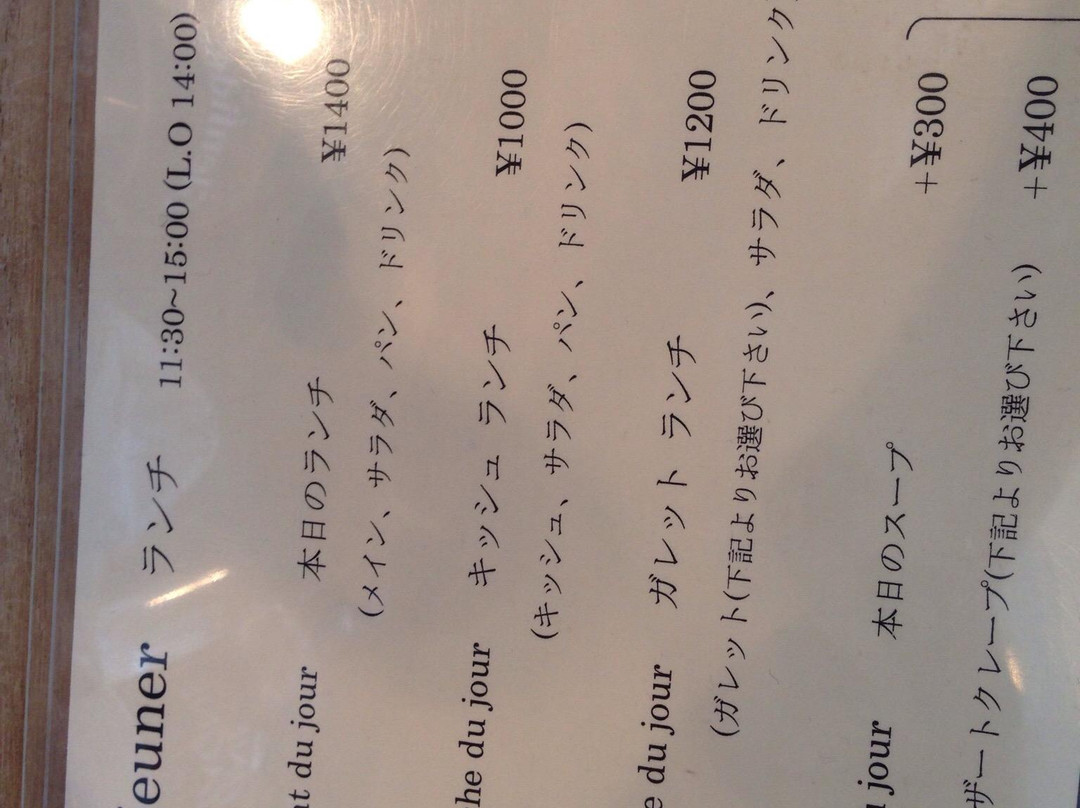 euner ランチ 11:30~15:00 (L.O 14:00)
t du jour 本日のランチ ¥1400
(メイン、サラダ、パン、ドリンク)
he du jour キッシュ ランチ ¥1000
(キッシュ、サラダ、パン、ドリンク)
e du jour ガレット ランチ ¥1200
(ガレット(下記よりお選び下さい)、サラダ、ドリンク
jour 本日のスープ +¥300
ザートクレープ(下記よりお選び下さい) +¥400